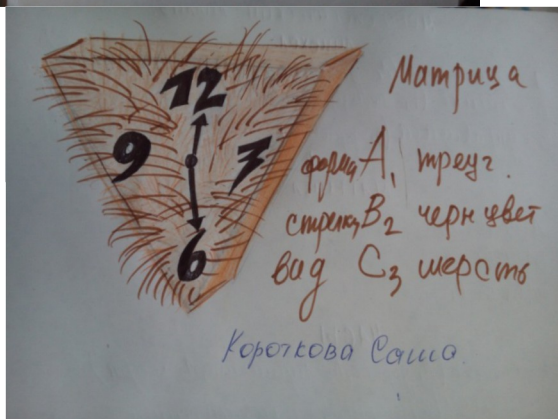 12
9 3
6
Матрица
форма A1 треуг.
стрелки B2 черн цвет
вид C3 шерсть
Короткова Саша.